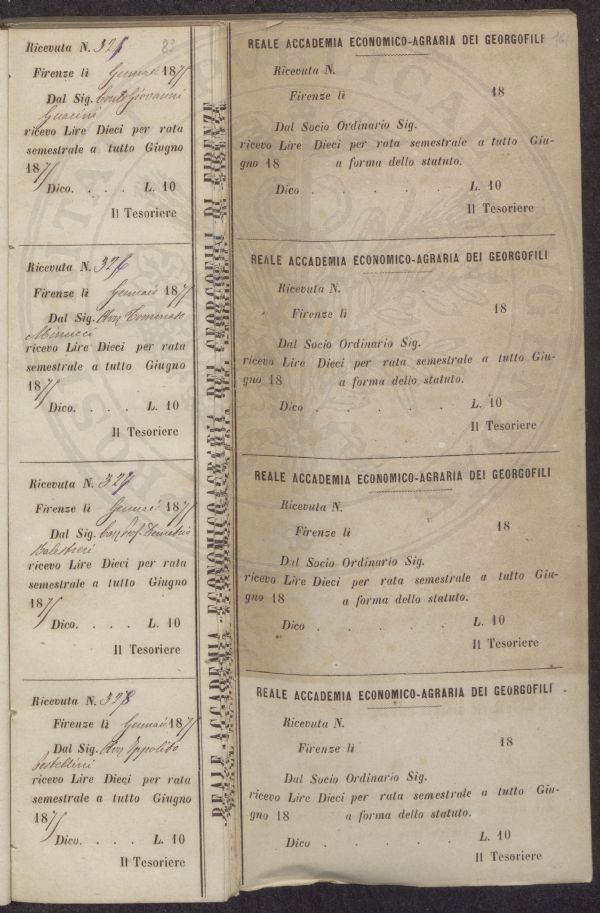 Ricevuta N. 325
83
Firenze li Gennaio 1875
Dal Sig. Conte Giovanni
Guicini
ricevo Lire Dieci per rata
semestrale a tutto Giugno
1875
Dico. . . . L. 10
Il Tesoriere
Ricevuta N. 326
Firenze li Gennaio 1875
Dal Sig. Tommaso
Minucci
ricevo Lire Dieci per rata
semestrale a tutto Giugno
1875
Dico. . . . L. 10
Il Tesoriere
Ricevuta N. 327
Firenze li Gennaio 1875
Dal Sig. Prof. Demetrio
Balestrieri
ricevo Lire Dieci per rata
semestrale a tutto Giugno
1875
Dico. . . . L. 10
Il Tesoriere
Ricevuta N. 328
Firenze li Gennaio 1875
Dal Sig. Ippolito
Pestellini
ricevo Lire Dieci per rata
semestrale a tutto Giugno
1875
Dico. . . . L. 10
Il Tesoriere
REALE ACCADEMIA ECONOMICO-AGRARIA DEI GEORGOFILI DI FIRENZE
REALE ACCADEMIA ECONOMICO-AGRARIA DEI GEORGOFILI
Ricevuta N.
Firenze li 18
Dal Socio Ordinario Sig.
ricevo Lire Dieci per rata semestrale a tutto Giu-
gno 18 a forma dello statuto.
Dico . . . . . L. 10
Il Tesoriere
REALE ACCADEMIA ECONOMICO-AGRARIA DEI GEORGOFILI
Ricevuta N.
Firenze li 18
Dal Socio Ordinario Sig.
ricevo Lire Dieci per rata semestrale a tutto Giu-
gno 18 a forma dello statuto.
Dico . . . . . L. 10
Il Tesoriere
REALE ACCADEMIA ECONOMICO-AGRARIA DEI GEORGOFILI
Ricevuta N.
Firenze li 18
Dal Socio Ordinario Sig.
ricevo Lire Dieci per rata semestrale a tutto Giu-
gno 18 a forma dello statuto.
Dico . . . . . L. 10
Il Tesoriere
REALE ACCADEMIA ECONOMICO-AGRARIA DEI GEORGOFILI
Ricevuta N.
Firenze li 18
Dal Socio Ordinario Sig.
ricevo Lire Dieci per rata semestrale a tutto Giu-
gno 18 a forma dello statuto.
Dico . . . . . L. 10
Il Tesoriere